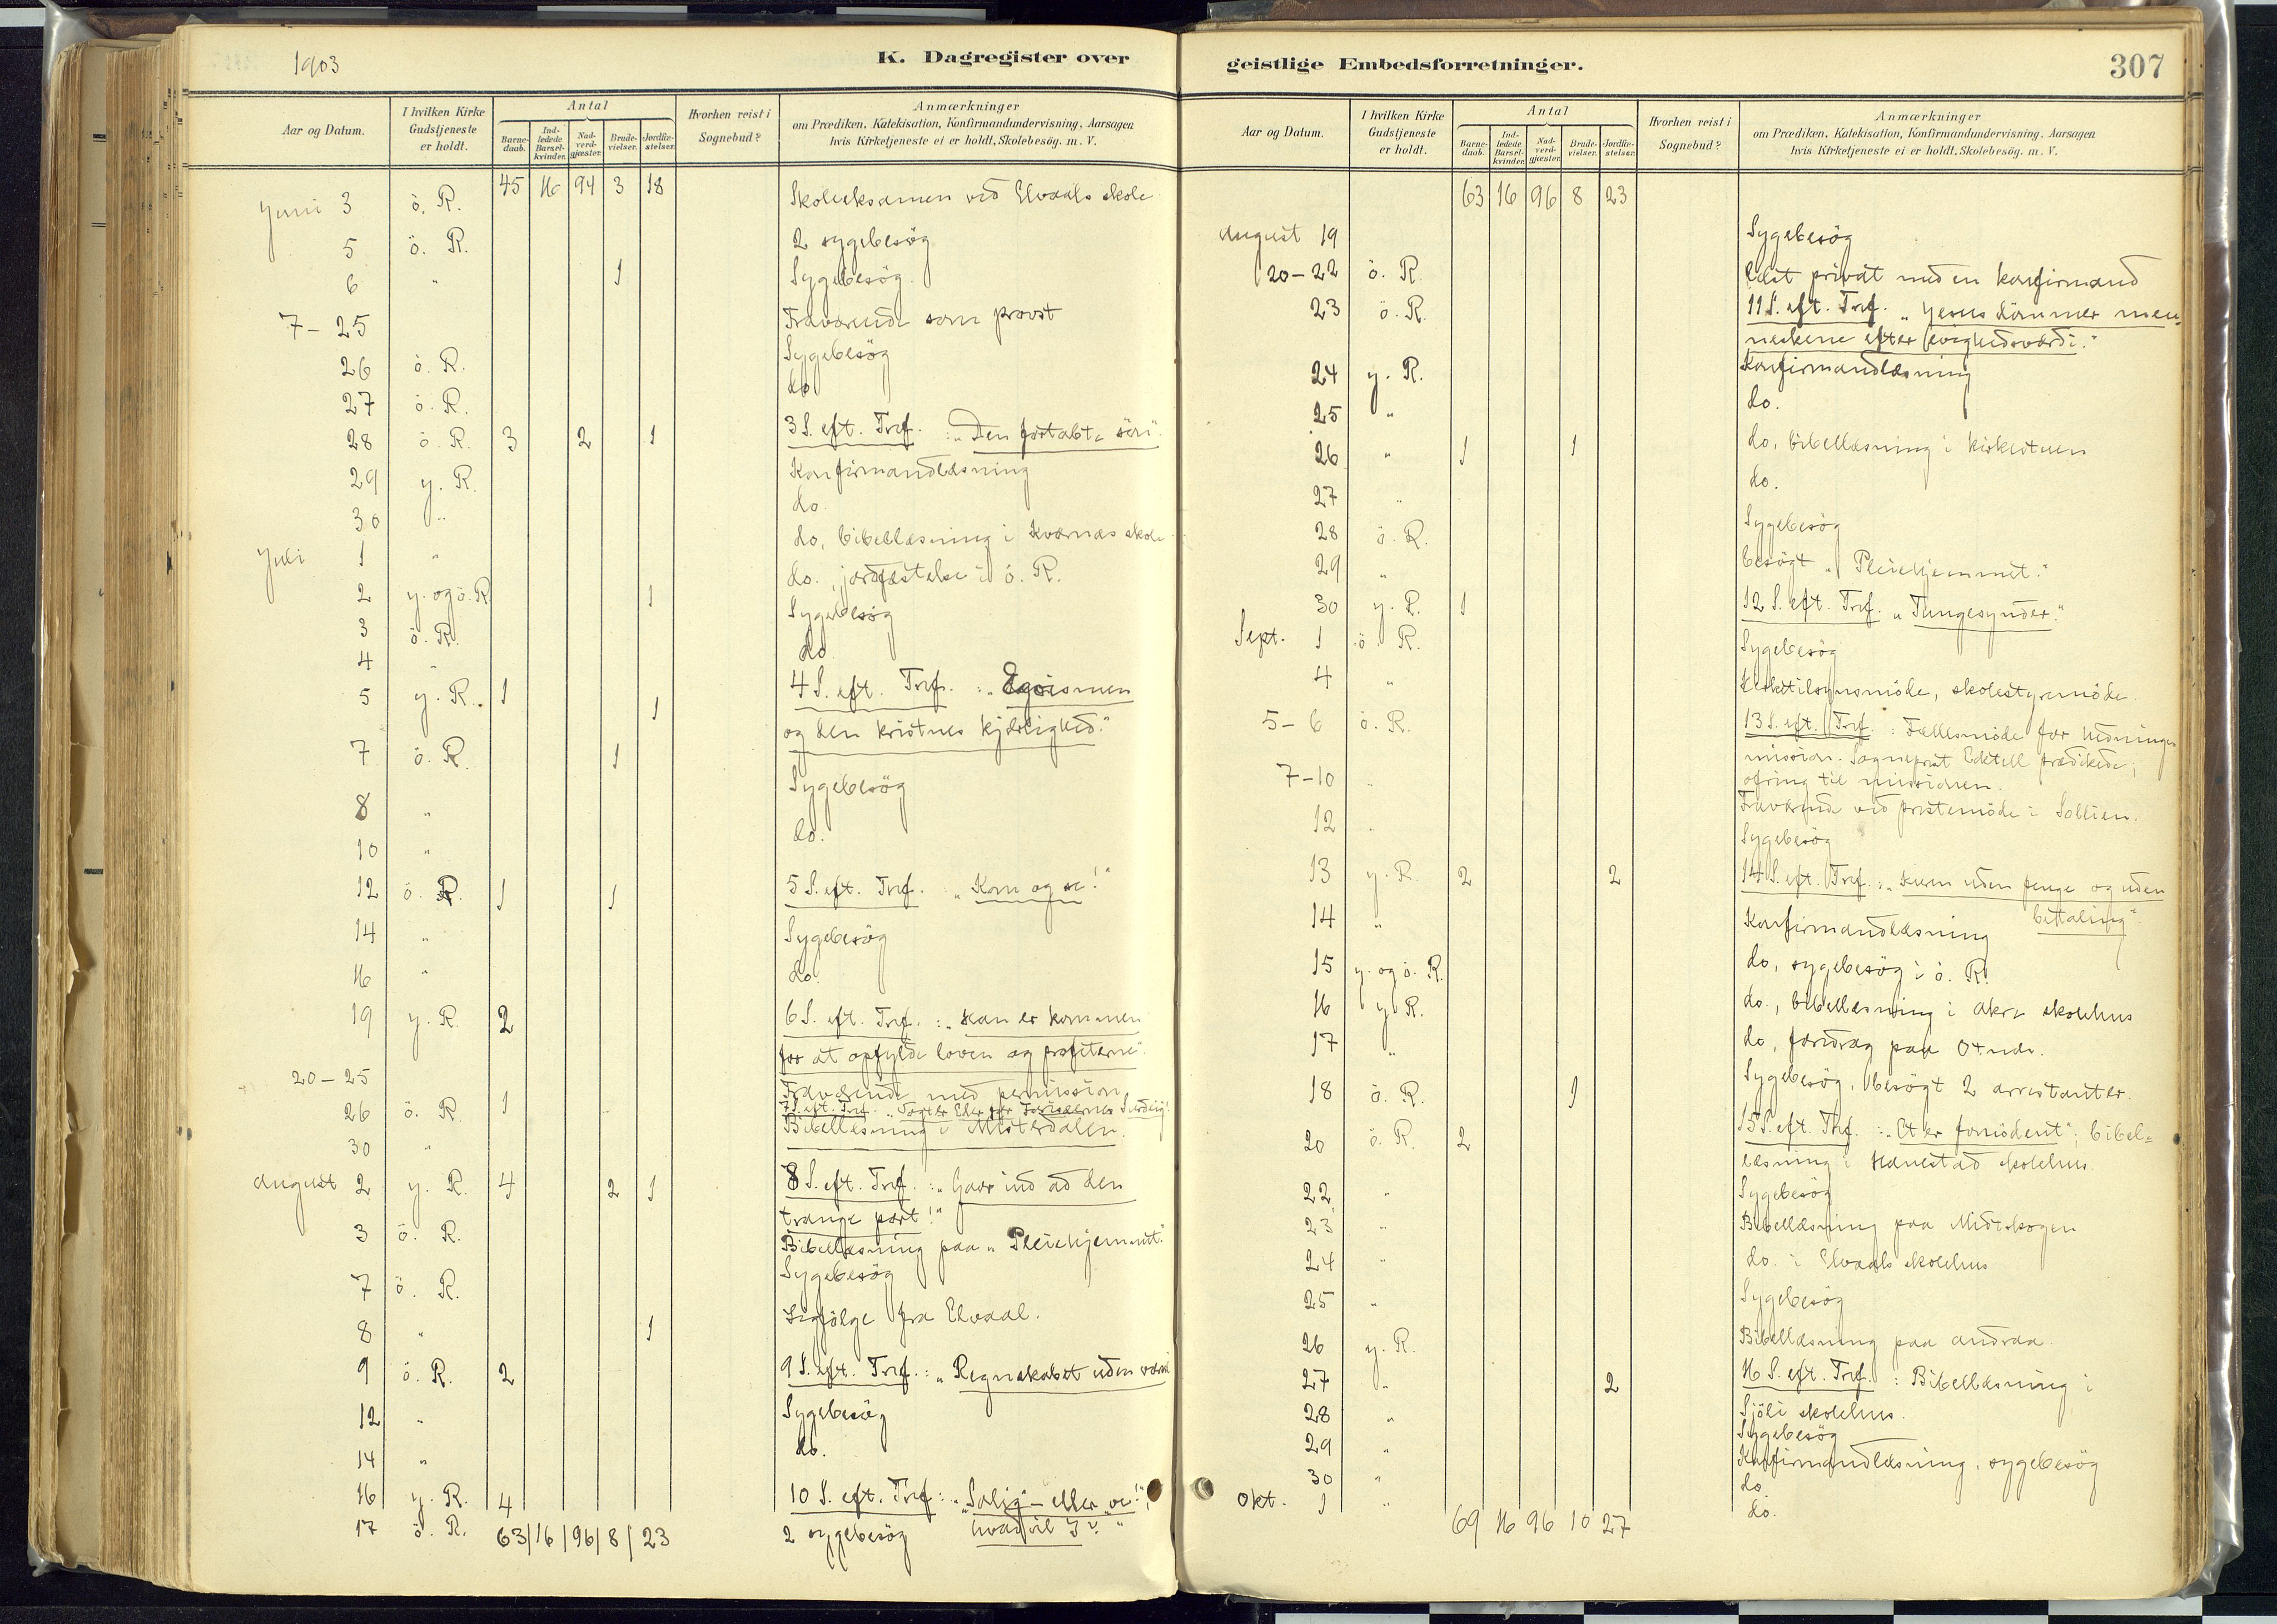 1903
K. Dagregister over
Aar og Datum.
I hvilken Kirke Gudstjeneste er holdt.
Antal
Barne-daab.
Ind-ledede Barsel-kvinder.
Nad-verd-gjæster.
Brude-vielser.
Jordfæ-stelser.
Hvorhen reist i Sognebud?
Anmærkninger
om Prædiken, Katekisation, Konfirmandundervisning, Aarsagen
hvis Kirketjeneste ei er holdt, Skolebesög. m. V.
45 16 94 3 18
Juni 3 ö. R. Skoleeksamen ved Elvaals skole
5 ö. R. 2 sygebesög
6 " 1 Sygebesög.
7-25 Fraværende som provst
26 ö. R. Sygebesög
27 ö. R. do
28 ö. R. 3 2 1 3 S. eft. Tref. : "Den fortabte sön".
29 y. R. Konfirmandlæsning
30 " do.
Juli 1 " do, bibellæsning i Kværnæs skole
2 y. og ö. R. 1 do., jordfæstelse i ö. R.
3 ö. R. Sygebesög
4 " do.
5 y. R. 1 1 4 S. eft. Tref. : "Egoismen
og den kristnes kjærlighed."
7 ö. R. 1 Sygebesög
8 " do.
10 "
12 ö. R. 1 1 5 S. eft. Tref. "Kom og se!"
14 " Sygebesög
16 " do.
19 y. R. 2 6 S. eft. Tref. : "Han er kommen
for at opfylde loven og profeterne".
20-25 Fraværende med permission
26 ö. R. 1 7 S. eft. Tref. "Tag er Eder for Farisæernes Surdeig!"
30 " Bibellæsning i Misterdalen.
August 2 y. R. 4 2 1 8 S. eft. Tref. : "Gaar ind ad den
trange port!"
3 ö. R. Bibellæsning paa "Pleiehjemmet."
7 ö. R. Sygebesög
8 " 1 Ligfölge fra Elvaal.
9 ö. R. 2 9 S. eft. Tref. : "Regnskabet uden
12 " Sygebesög
14 " do.
16 y. R. 4 10 S. eft. Tref. : "Salig" - eller "ve!";
hvad vil I?"
17 ö. R. 2 sygebesög
63 16 96 8 23
geistlige Embedsforretninger.
307
Aar og Datum.
I hvilken Kirke Gudstjeneste er holdt.
Antal
Barne-daab.
Ind-ledede Barsel-kvinder.
Nad-verd-gjæster.
Brude-vielser.
Jordfæ-stelser.
Hvorhen reist i Sognebud?
Anmærkninger
om Prædiken, Katekisation, Konfirmandundervisning, Aarsagen
hvis Kirketjeneste ei er holdt, Skolebesög. m. V.
63 16 96 8 23
August 19 Sygebesög
20-22 ö. R. læst privat med en konfirmand
23 ö. R. 11 S. eft. Tref. "Jesus dömmer men-
neskene efter evighedsværdi."
24 y. R. Konfirmandlæsning
25 " do.
26 " 1 1 do, bibellæsning i kirkestuen
27 " do.
28 ö. R. Sygebesög
29 " besögt "Pleiehjemmet."
30 y. R. 1 12 S. eft. Tref. "Tungesynder."
Sept. 1 ö. R. Sygebesög
4 " Kirketilsynsmöde, skolestyremöde.
5-6 ö. R. 13 S. eft. Tref. : Fællesmöde for hedninge-
mission. Sogneprst prædikede;
ofring til missionen.
7-10 " Fraværende ved prestemöde i Sollien.
12 " Sygebesög
13 y. R. 2 2 14 S. eft. Tref. : "Kun uden penge og uden
betaling".
14 " Konfirmandlæsning
15 y. og ö. R. do, sygebesög i ö. R.
16 y. R. do., bibellæsning i Akre skolehus
17 " do, foredrag paa Otnes.
18 ö. R. 1 Sygebesög, besögt 2 arrestanter.
20 ö. R. 2 15 S. eft. Tref. : "Et er fornödent"; bibel-
læsning i Hanestad skolehus.
22 " Sygebesög
23 " Bibellæsning paa Midtskogen
24 " do. i Elvaals skolehus
25 " Sygebesög
26 y. R. Bibellæsning paa Andraa
27 " 2 16 S. eft. Tref. : Bibellæsning i
Sjöli skolehus.
28 " Sygebesög
29 " Konfirmandlæsning, sygebesög
30 " do
Okt. 1 " do.
69 16 96 10 27